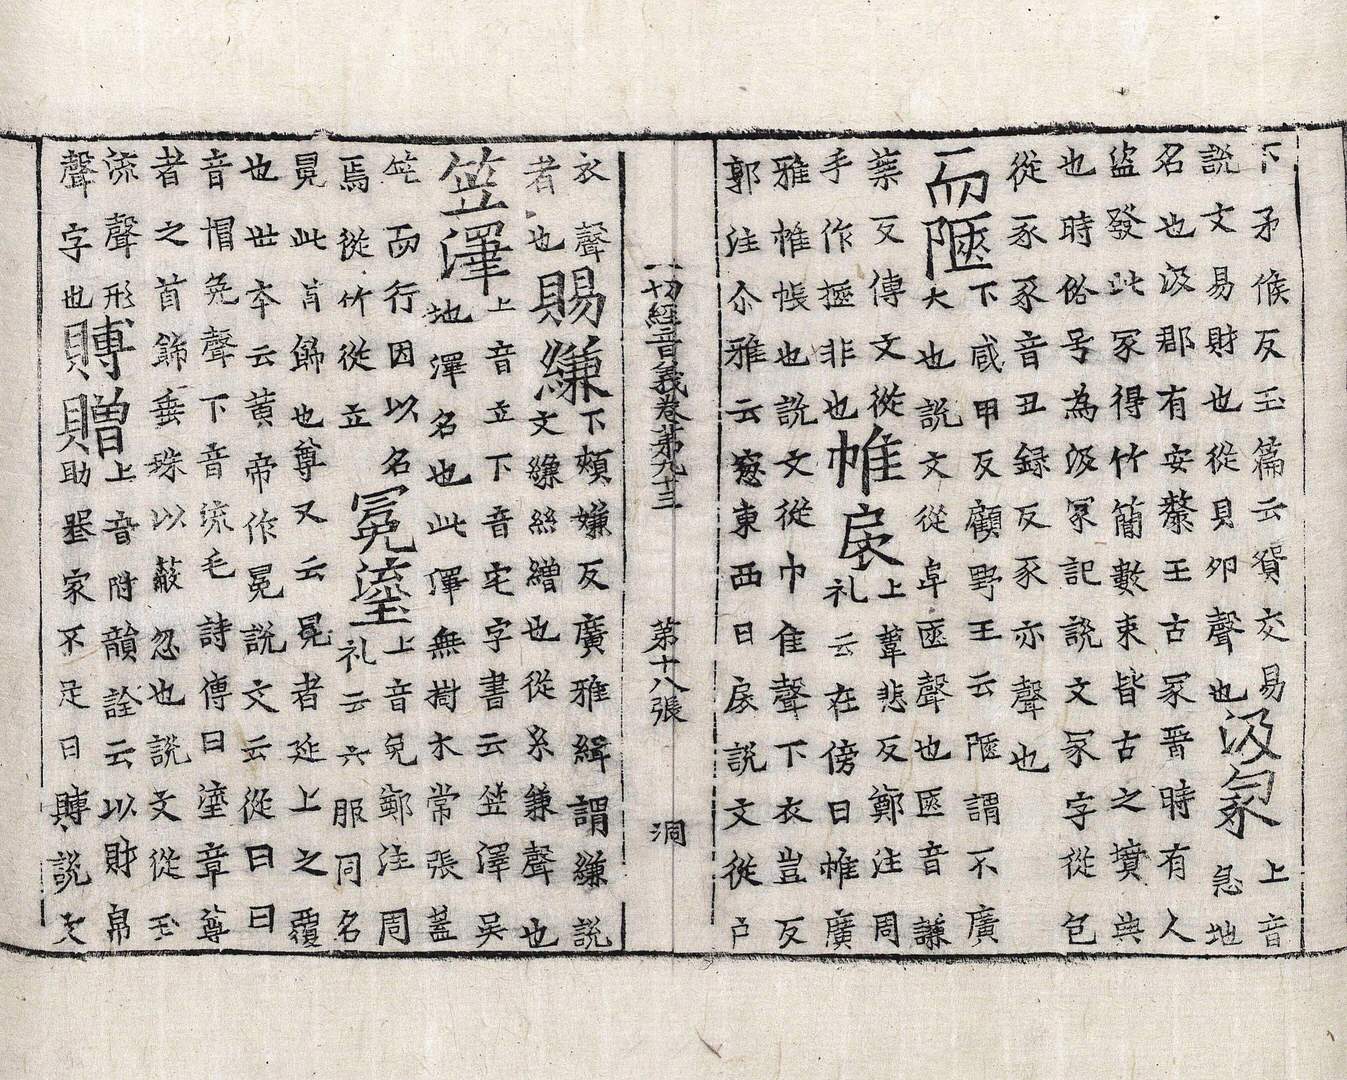 下矛候反玉篇云貿交易也汲冢上音
說文易財也從貝卯聲也急地
名也汲郡有安釐王古冢晋時有人
盗發此冢得竹簡數束皆古之墳典
也時俗号為汲冢記說文冢字從包
從豕豕音丑録反豕亦聲也
而陿下咸甲反顧野王云陿謂不廣
大也說文從𨸏匧聲也匧音謙
葉反傳文從手作挾非也帷扆上葦悲反鄭注周
礼云在傍曰帷廣
雅帷帳也說文從巾隹聲下衣豈反
郭注尒雅云窓東西曰扆說文從户
一切經音義卷苐九十三 第十八張 洞
衣聲者也賜縑下頰嫌反廣雅緝謂縑說
文縑絲繒也從糸兼聲也
笠澤上音立下音宅字書云笠澤吳
地澤名也此澤無樹木常張蓋
笠而行因以名焉從竹從立冕瑬上音免鄭注周
礼云六服同名
冕此首飾也尊又云冕者延上之覆
也世本云黄帝作冕說文云從曰曰
音㡌免聲下音流毛詩傳曰瑬章尊
者之首飾垂珠以蔽忽也說文從玉
流聲形聲字也賻贈上音附韻詮云以財帛
助喪家不足曰賻說文